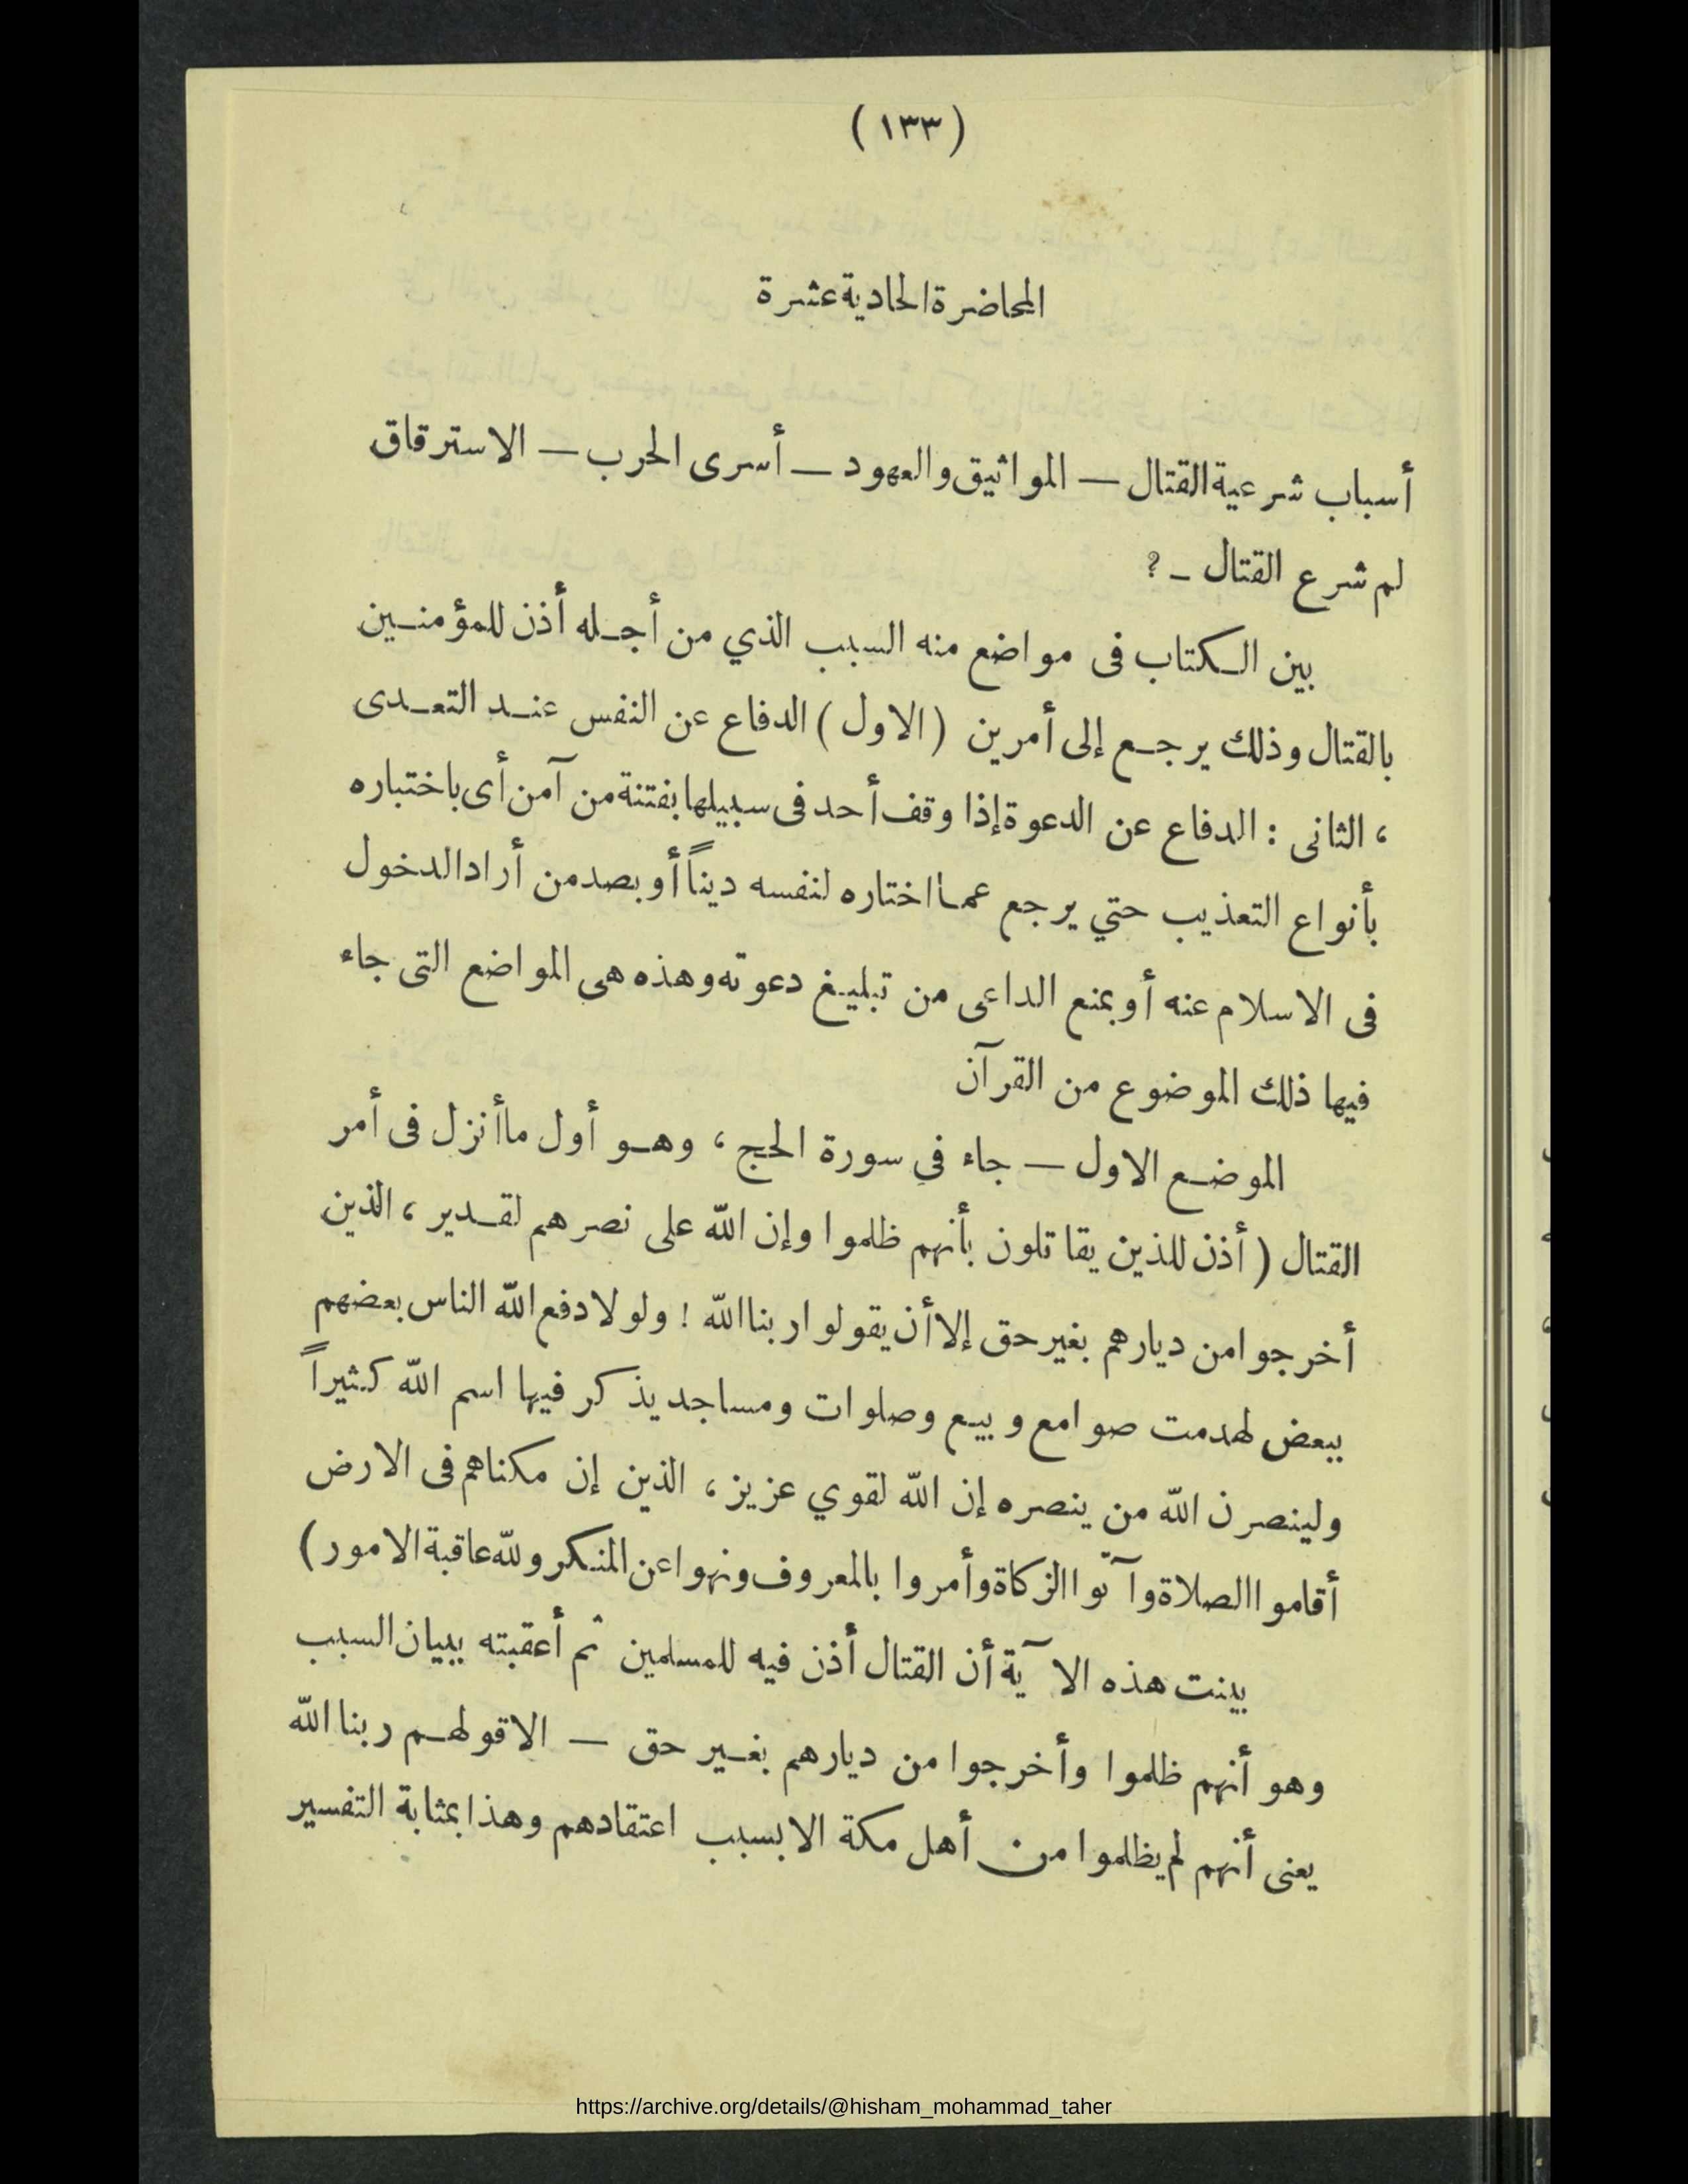 ( ١٣٣ )
المحاضرة الحادية عشرة
أسباب شرعية القتال — المواثيق والعهود — أسرى الحرب — الاسترقاق
لم شرع القتال - ؟
بين الكتاب فى مواضع منه السبب الذي من أجله أذن للمؤمنين
بالقتال وذلك يرجع إلى أمرين ( الاول ) الدفاع عن النفس عند التعدى
، الثانى : الدفاع عن الدعوة إذا وقف أحد فى سبيلها بفتنة من آمن أى باختباره
بأنواع التعذيب حتي يرجع عما اختاره لنفسه ديناً أو بصد من أراد الدخول
فى الاسلام عنه أو بمنع الداعى من تبليغ دعوته وهذه هى المواضع التى جاء
فيها ذلك الموضوع من القرآن
الموضع الاول — جاء في سورة الحج ، وهو أول ما أنزل فى أمر
القتال ( أذن للذين يقاتلون بأنهم ظلموا وإن الله على نصرهم لقدير ، الذين
أخرجوا من ديارهم بغير حق إلا أن يقولوا ربنا الله ! ولولا دفع الله الناس بعضهم
ببعض لهدمت صوامع وبيع وصلوات ومساجد يذكر فيها اسم الله كثيراً
ولينصرن الله من ينصره إن الله لقوي عزيز ، الذين إن مكناهم فى الارض
أقاموا الصلاة وآتوا الزكاة وأمروا بالمعروف ونهوا عن المنكر ولله عاقبة الامور )
بينت هذه الآية أن القتال أذن فيه للمسلمين ثم أعقبته ببيان السبب
وهو أنهم ظلموا وأخرجوا من ديارهم بغير حق — الا قولهم ربنا الله
يعنى أنهم لم يظلموا من أهل مكة الا بسبب اعتقادهم وهذا بمثابة التفسير
https://archive.org/details/@hisham_mohammad_taher